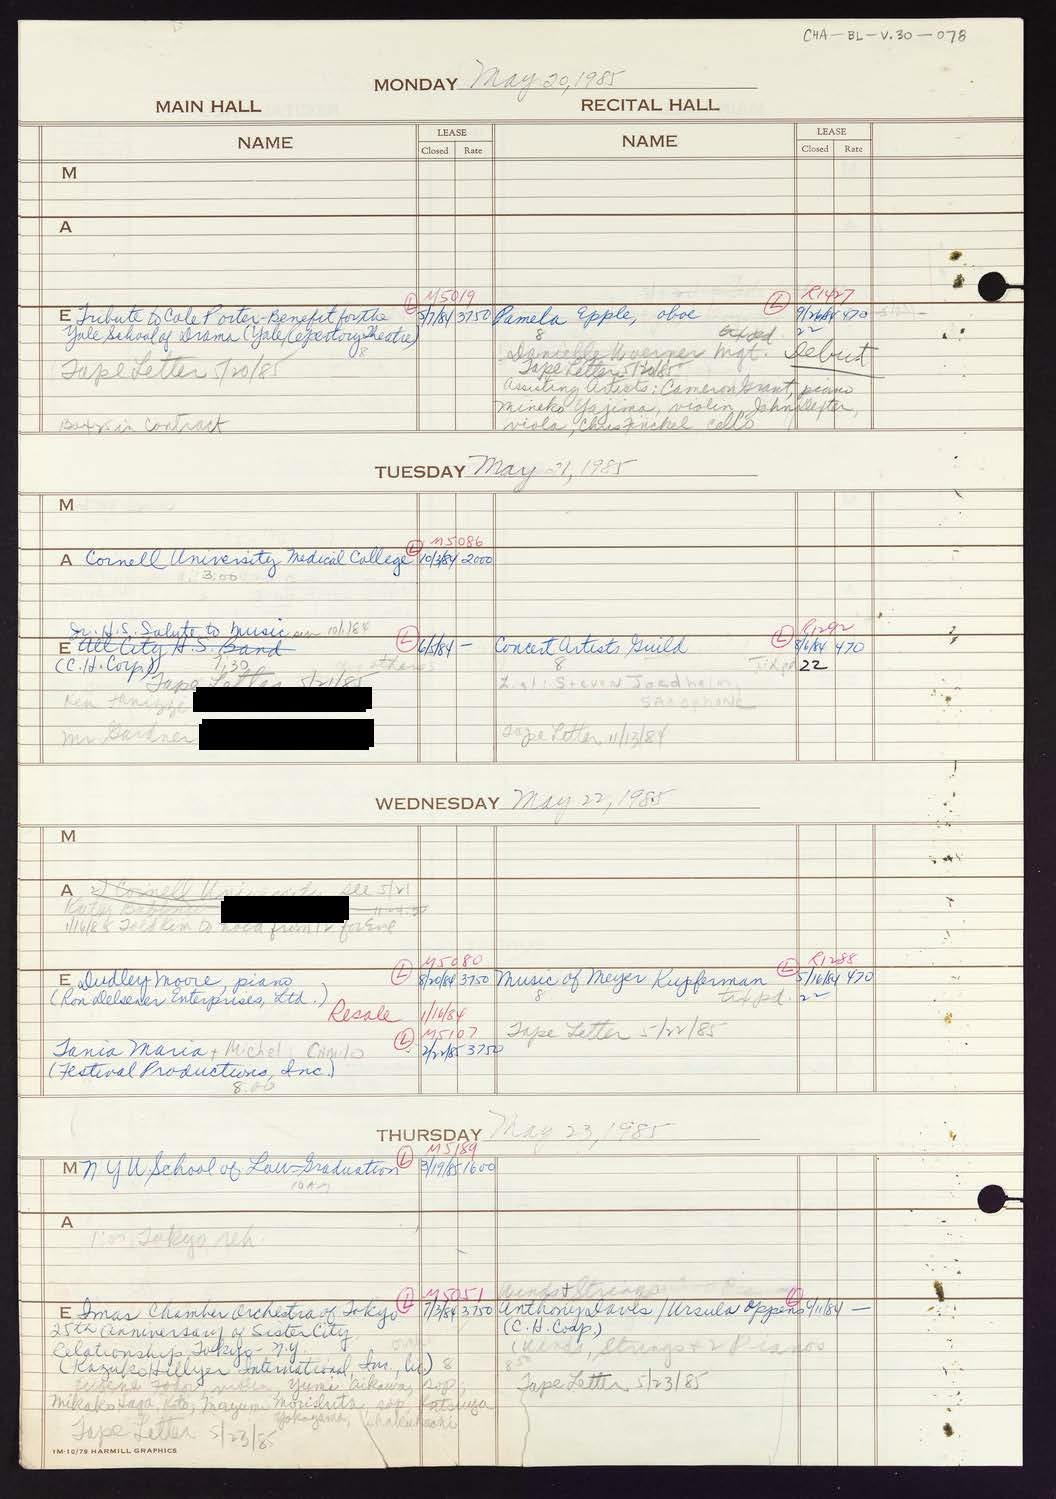 CHA-BL-V.30-078
MONDAY May 20, 1985
MAIN HALL RECITAL HALL
NAME LEASE NAME LEASE
Closed Rate Closed Rate
M
A
M5019 R1427
E Tribute to Cole Porter-Benefit for the L 5/7/84 3750 Pamela Epple, oboe L 9/26/84 470
Yale School of Drama (Yale Repertory Theatre) 8 22
8 Danielle Woerner Mgt. Debut
Tape Letter 5/20/85 Tape Letter 5/20/85
Assisting Artists: Cameron Grant, piano
Mineko Yajima, violin, John
Boxes in Contract viola, Chris Finckel cello
TUESDAY May 21, 1985
M
M5086
A Cornell University Medical College L 10/3/84 2000
3:00
Jr. H.S. Salute to Music 10/1/84 R1292
E All City H.S. Band L 6/5/84 — Concert Artists Guild L 8/6/84 470
(C.H. Corp) 7:30 8 22
Tape Letter 5/21/85
Ken SAXOPHONE
Mr Gardner Tape Letter 11/13/84
WEDNESDAY May 22, 1985
M
A 2) Cornell University see 5/21
M5080 R1288
E Dudley Moore, piano L 8/20/84 3750 Music of Meyer Kupferman L 5/16/84 470
(Ron Delsener Enterprises, Ltd.) 8 22
Resale 1/16/84
M5107 Tape Letter 5/22/85
Tania Maria + Michel Camilo L 2/22/85 3750
(Festival Productions, Inc.)
8:00
THURSDAY May 23, 1985
M5189
M N Y U School of Law-Graduation L 3/19/85 1600
10 AM
A
Tokyo reh.
M5051 Winds + Strings
E Imas Chamber Orchestra of Tokyo L 7/3/84 3750 Anthony Davis / Ursula Oppens L 9/11/84 —
25th Anniversary of Sister City (C.H. Corp)
Relationship, Tokyo - N.Y. (Winds, Strings + 2 Pianos
(Kazuko Hillyer International, Inc.,) 8
Eugene Fodor, violin, Yumi Aikawa, sop, Tape Letter 5/23/85
koto, Mayumi Morishita, sop, Katsuya
Yokoyama, shakuhachi
Tape Letter 5/23/85
1M-10/79 HARMILL GRAPHICS